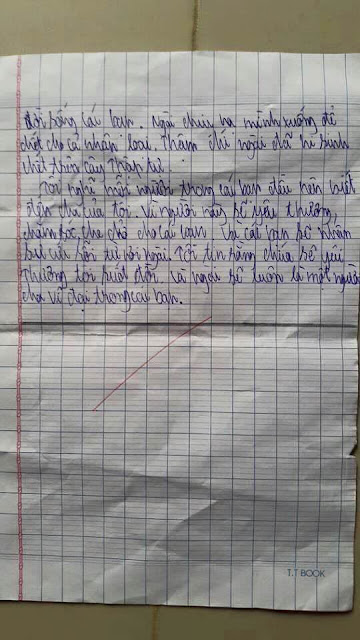 đời sống các bạn. Ngài chịu hạ mình xuống để
chết cho cả nhân loại. Thậm chí ngài đã hi sinh
chết trên cây thập tự.
Tôi nghĩ mỗi người trong các bạn đều nên biết
đến cha của tôi. Vì người này sẽ yêu thương,
chăm sóc, che chở cho các bạn. Và các bạn sẽ nhận
sự cứu rỗi từ nơi ngài. Tôi tin rằng chúa sẽ yêu
thương tôi suốt đời. Và ngài sẽ luôn là một người
cha vĩ đại trong các bạn.
T.T BOOK